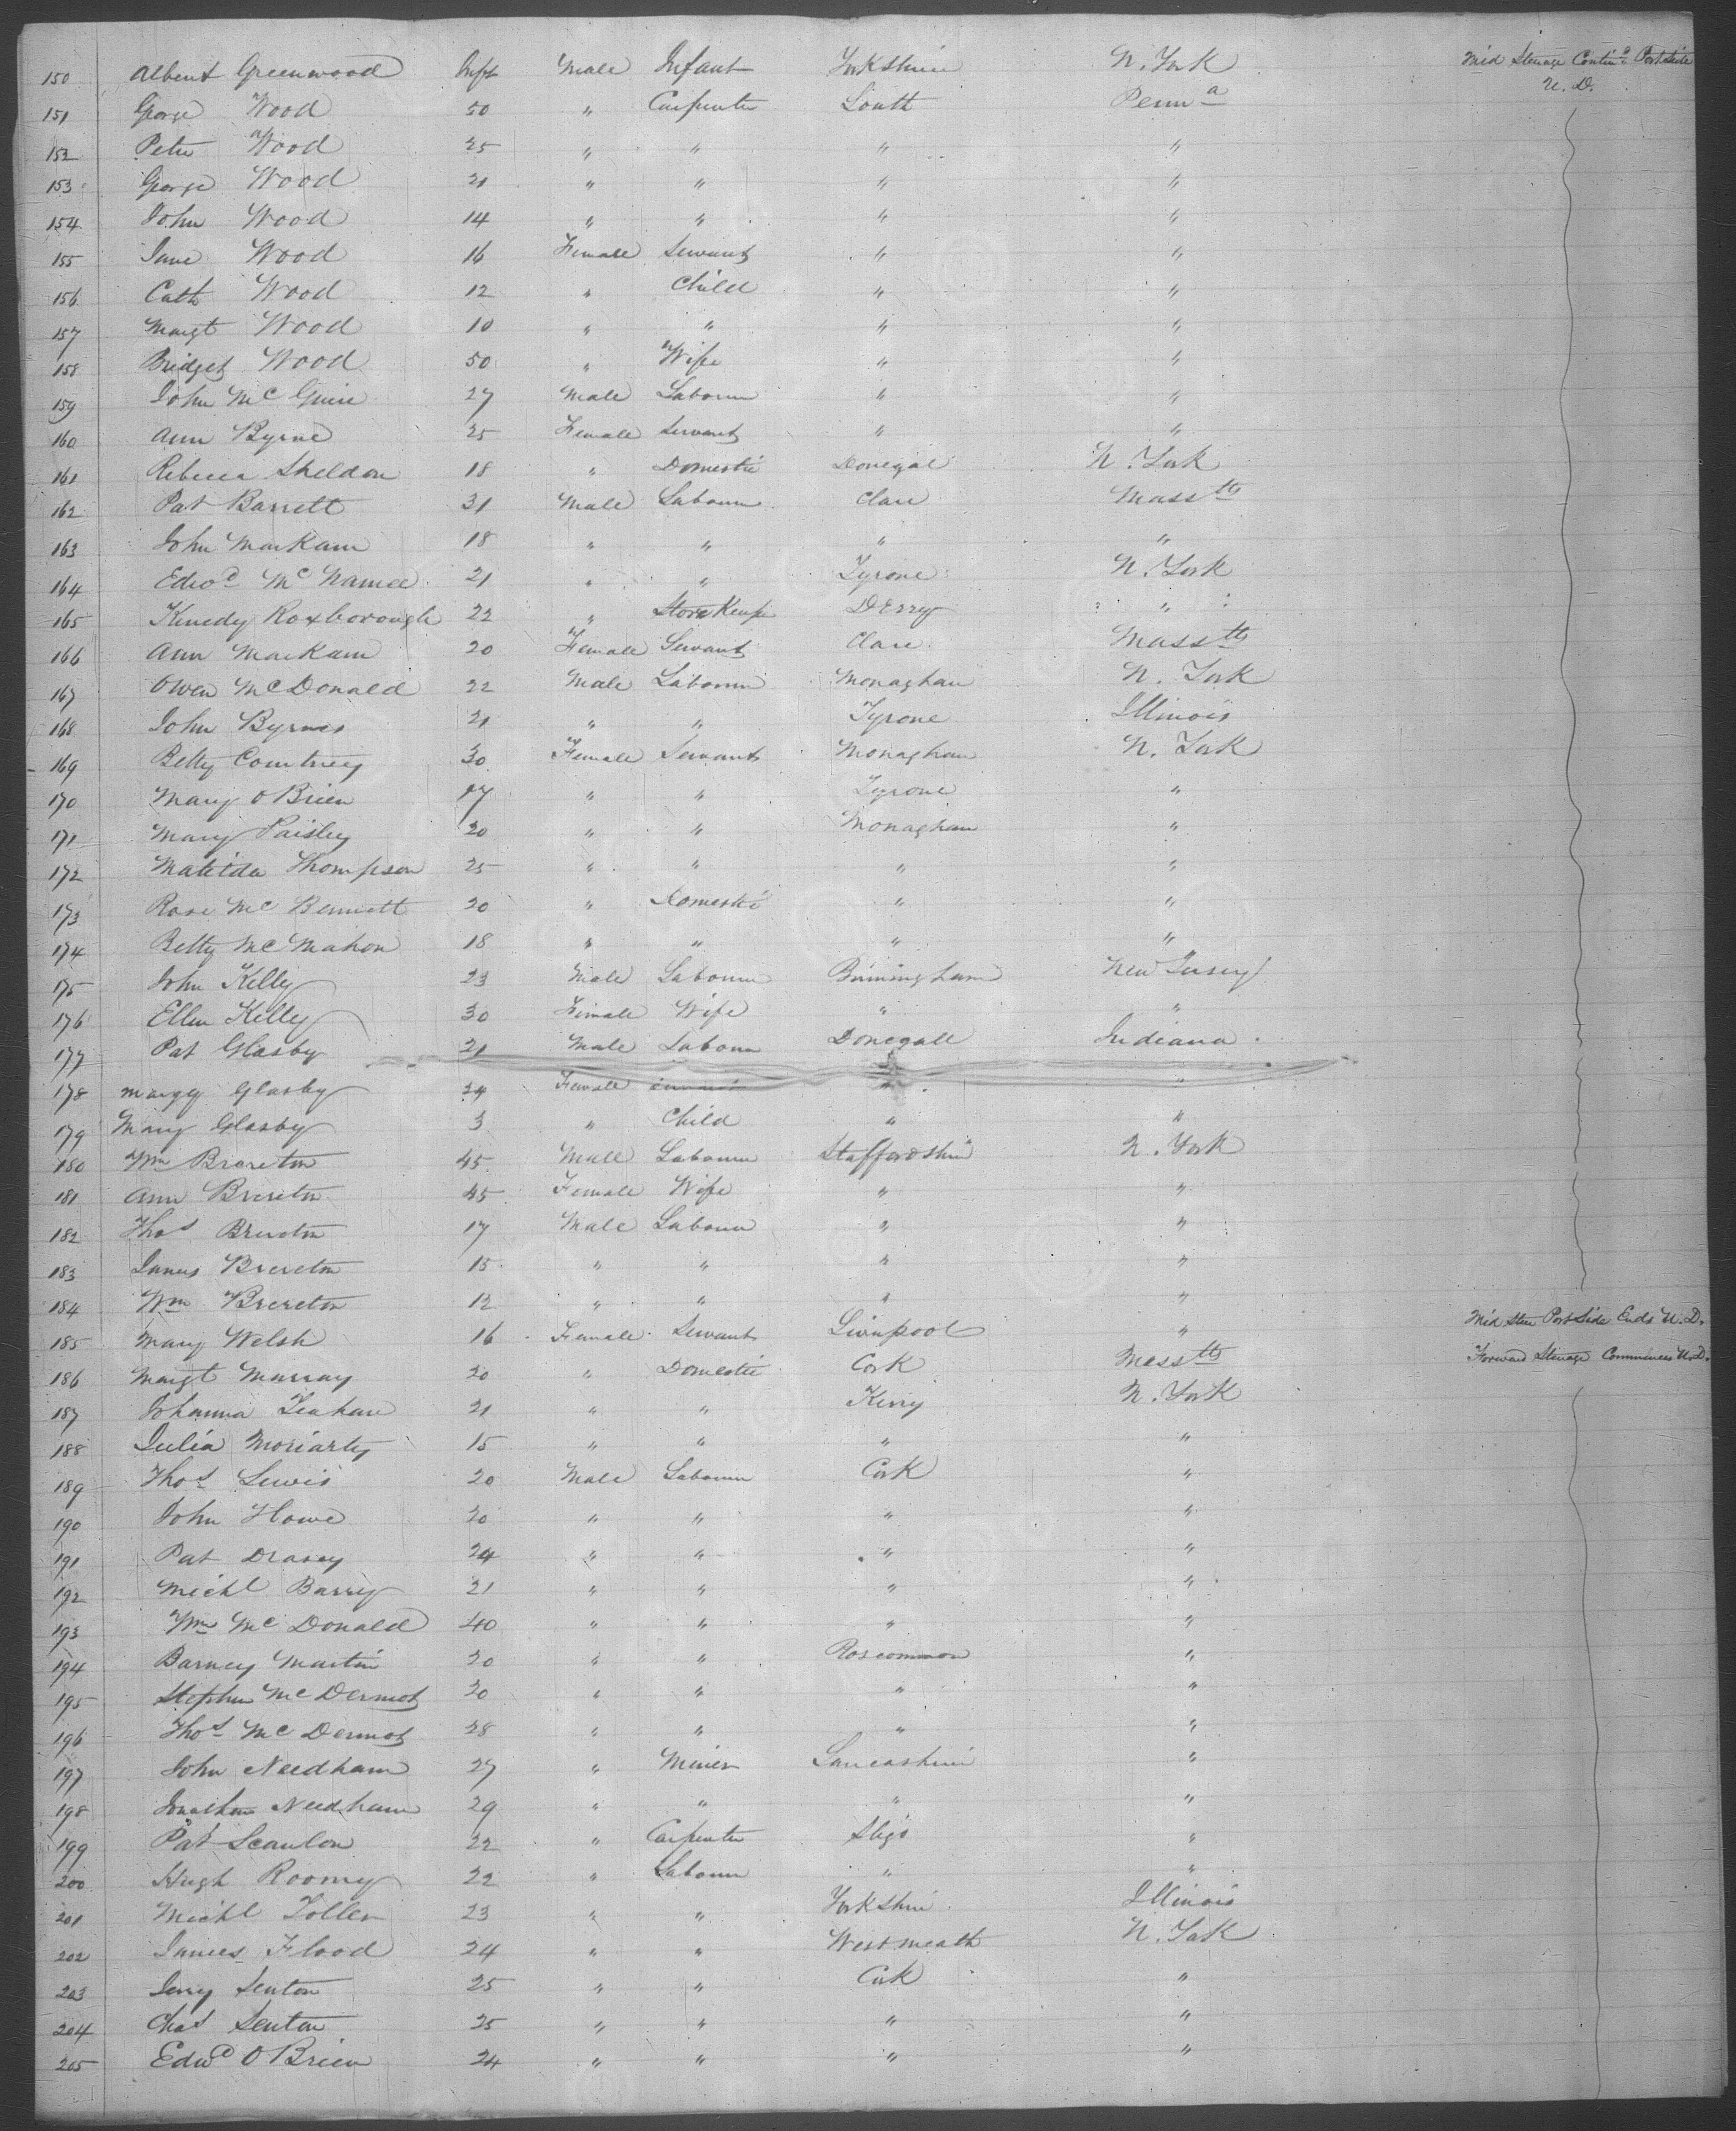 150 Albert Greenwood Inft Male Infant Yorkshire N. York Mid Steerage Contind Port Side
U. D.
151 George Wood 50 " Carpenter Louth Penna
152 Peter Wood 25 " " " "
153 George Wood 21 " " " "
154 John Wood 14 " " " "
155 Jane Wood 16 Female Servant " "
156 Cath Wood 12 " Child " "
157 Margt Wood 10 " " " "
158 Bridget Wood 50 " Wife " "
159 John McGuire 27 Male Labourer " "
160 Ann Byrne 25 Female Servant " "
161 Rebecca Sheldon 18 " Domestic Donegal N. York
162 Pat Barrett 31 Male Labourer Clare Masstts
163 John Markam 18 " " " "
164 Edwd McNamee 21 " " Tyrone N. York
165 Kenedy Roxborough 22 " Store Keeper Derry "
166 Ann Markam 20 Female Servant Clare Masstts
167 Owen McDonald 22 Male Labourer Monaghan N. York
168 John Byrnes 21 " " Tyrone Illinois
169 Betty Courtney 30 Female Servant Monaghan N. York
170 Mary O Brien 17 " " Tyrone "
171 Mary Paisley 20 " " Monaghan "
172 Matilda Thompson 25 " " " "
173 Rose Mc Bennett 20 " Domestic " "
174 Betty McMahon 18 " " " "
175 John Kelly 23 Male Labourer Birmingham New Jersey
176 Ellen Kelly 30 Female Wife " "
177 Pat Glasby 21 Male Labourer Donegall Indiana
178 Margy Glasby 24 Female " "
179 Mary Glasby 3 " Child " "
180 Wm Brereton 45 Male Labourer Staffordshire N. York
181 Ann Brereton 45 Female Wife " "
182 Thos Brereton 17 Male Labourer " "
183 James Brereton 15 " " " "
184 Wm Brereton 12 " " " "
185 Mary Welsh 16 Female Servant Liverpool " Mid Steer Port Side Ends U. D.
186 Margt Murray 20 " Domestic Cork Masstts Forward Steerage Commences U. D.
187 Johanna Leahane 21 " " Kerry N. York
188 Julia Moriarty 15 " " " "
189 Thos Lewis 20 Male Labourer Cork "
190 John Howe 20 " " " "
191 Pat Drasey 24 " " " "
192 Michl Barry 21 " " " "
193 Wm McDonald 40 " " " "
194 Barney Martin 20 " " Roscommon "
195 Stephen McDermot 20 " " " "
196 Thos McDermot 28 " " " "
197 John Needham 27 " Miner Lancashire "
198 Jonathan Needham 29 " " " "
199 Pat Scanlon 22 " Carpenter Sligo "
200 Hugh Rooney 22 " Labourer " "
201 Michl Toller 23 " " Yorkshire Illinois
202 James Flood 24 " " Westmeath N. York
203 Jerry Senton 25 " " Cork "
204 Chas Senton 25 " " " "
205 Edwd O Brien 24 " " " "